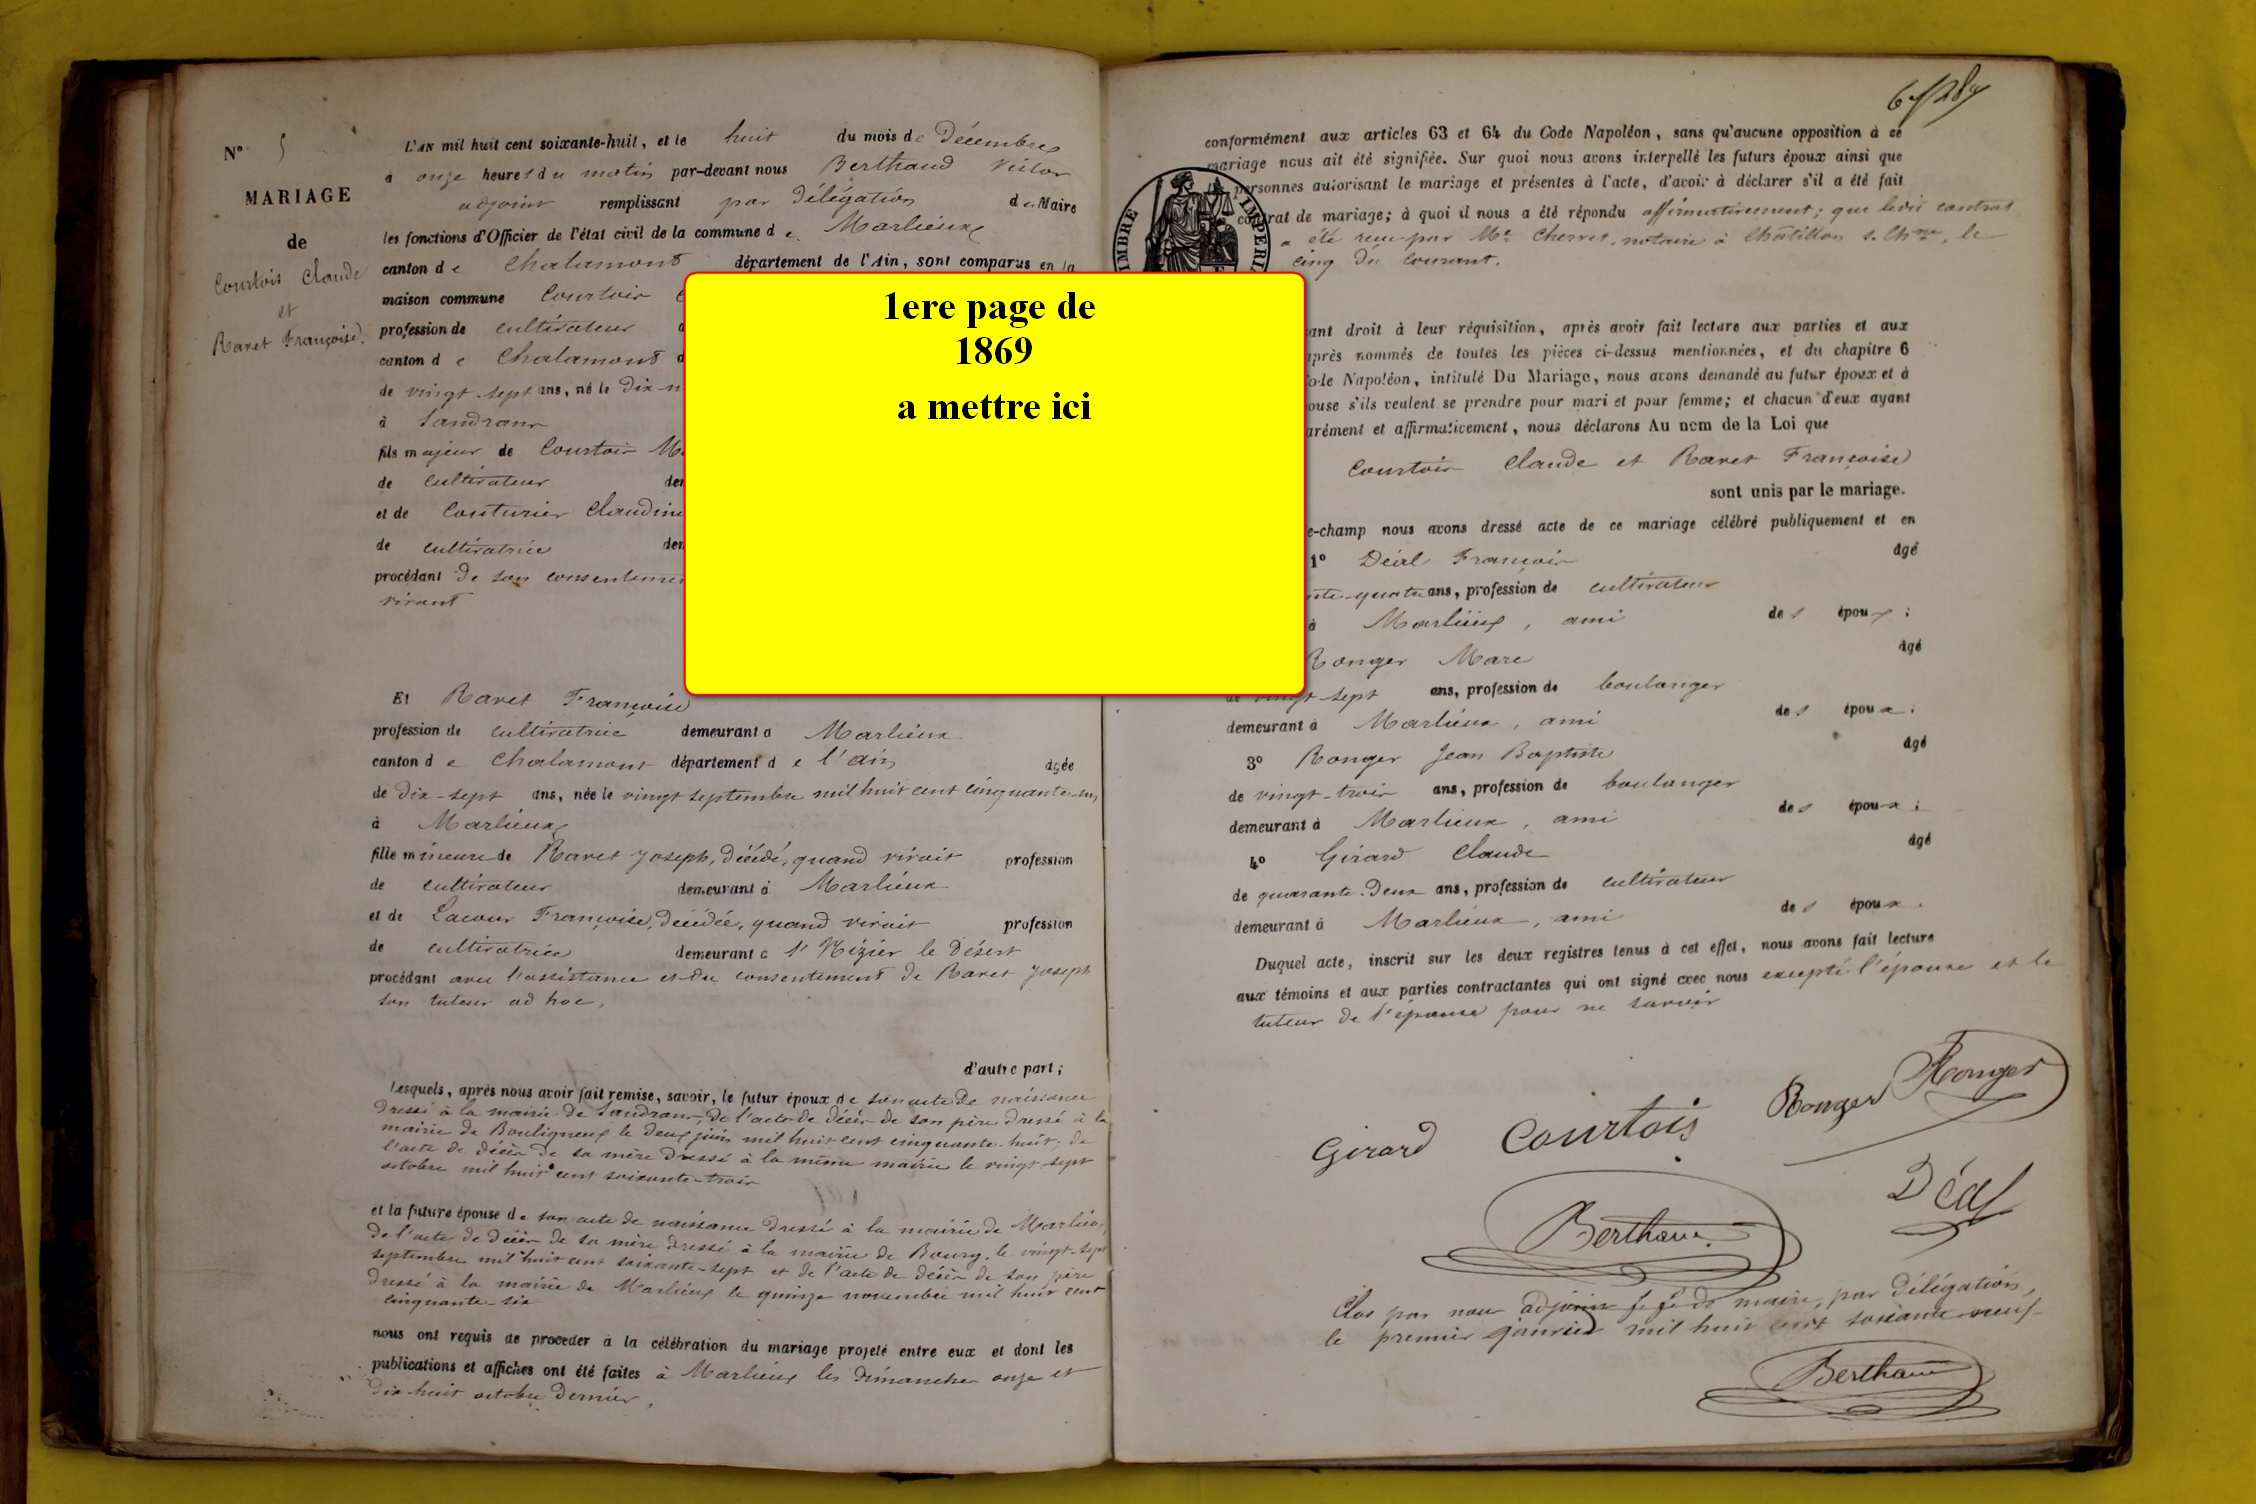 N° 5
MARIAGE
de
Courtois Claude
et
Ravet Françoise.
L'AN mil huit cent soixante-huit, et le huit du mois de Décembre
à onze heures du matin par-devant nous Berthaud Victor
adjoint remplissant par délégation du Maire
les fonctions d'Officier de l'état civil de la commune de Marlieux
canton de Chalamont département de l'Ain, sont comparus en la
maison commune Courtois
profession de cultivateur
canton de Chalamont
de vingt-sept ans, né le dix-n
à Sandrans
fils majeur de Courtois
de cultivateur
et de Couturier Claudine
de cultivatrice
procédant de son consentement
vivant
1ere page de
1869
a mettre ici
Et Ravet Françoise
profession de cultivatrice demeurant à Marlieux
canton de Chalamont département de l'ain âgée
de dix-sept ans, née le vingt septembre mil huit cent cinquante-un
à Marlieux
fille mineure de Ravet Joseph, décédé, quand vivait profession
de cultivateur demeurant à Marlieux
et de Lacour Françoise, décédée, quand vivait profession
de cultivatrice demeurant à St Nizier le Désert
procédant avec l'assistance et du consentement de Ravet Joseph
son tuteur ad hoc,
d'autre part;
Lesquels, après nous avoir fait remise, savoir, le futur époux de son acte de naissance
dressé à la mairie de Sandrans, de l'acte de décès de son père dressé à la
mairie de Bouligneux le deux juin mil huit cent cinquante-huit, de
l'acte de décès de sa mère dressé à la même mairie le vingt-sept
octobre mil huit cent soixante-trois
et la future épouse de son acte de naissance dressé à la mairie de Marlieux,
de l'acte de décès de sa mère dressé à la mairie de Bourg, le vingt-sept
septembre mil huit cent soixante-sept et de l'acte de décès de son père
dressé à la mairie de Marlieux le quinze novembre mil huit cent
cinquante-six
nous ont requis de procéder à la célébration du mariage projeté entre eux et dont les
publications et affiches ont été faites à Marlieux les dimanches onze et
dix-huit octobre dernier,
conformément aux articles 63 et 64 du Code Napoléon, sans qu'aucune opposition à ce
mariage nous ait été signifiée. Sur quoi nous avons interpellé les futurs époux ainsi que
personnes autorisant le mariage et présentes à l'acte, d'avoir à déclarer s'il a été fait
contrat de mariage; à quoi il nous a été répondu affirmativement; que ledit contrat
a été reçu par Me Cherret, notaire à Châtillon s. Chne, le
cinq du courant.
TIMBRE IMPERIAL
ant droit à leur réquisition, après avoir fait lecture aux parties et aux
après nommés de toutes les pièces ci-dessus mentionnées, et du chapitre 6
Code Napoléon, intitulé Du Mariage, nous avons demandé au futur époux et à
ouse s'ils veulent se prendre pour mari et pour femme; et chacun d'eux ayant
arément et affirmativement, nous déclarons Au nom de la Loi que
Courtois Claude et Ravet Françoise
sont unis par le mariage.
e-champ nous avons dressé acte de ce mariage célébré publiquement et en
1° Déal François âgé
ante-quatre ans, profession de cultivateur
à Marlieux, ami des époux;
Ronger Marc âgé
de vingt-sept ans, profession de boulanger
demeurant à Marlieux, ami des époux;
3° Ronger Jean Baptiste âgé
de vingt-trois ans, profession de boulanger
demeurant à Marlieux, ami des époux;
4° Girard Claude âgé
de quarante-deux ans, profession de cultivateur
demeurant à Marlieux, ami des époux.
Duquel acte, inscrit sur les deux registres tenus à cet effet, nous avons fait lecture
aux témoins et aux parties contractantes qui ont signé avec nous excepté l'épouse et le
tuteur de l'épouse pour ne savoir
Ronger Ronger
Girard Courtois
Déal
Berthaud
Clos par nous adjoint f. f. de maire, par délégation,
le premier janvier mil huit cent soixante-neuf
Berthaud